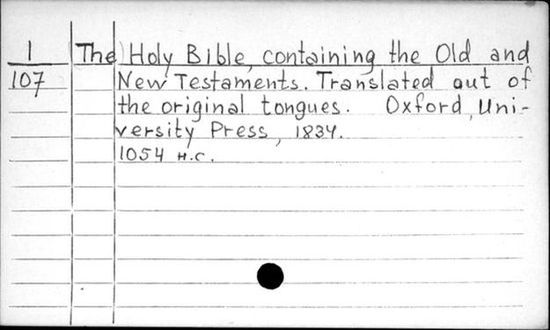 1 The Holy Bible, containing the Old and
107 New Testaments. Translated out of
the original tongues. Oxford, Uni-
versity Press, 1834.
1054 н.с.